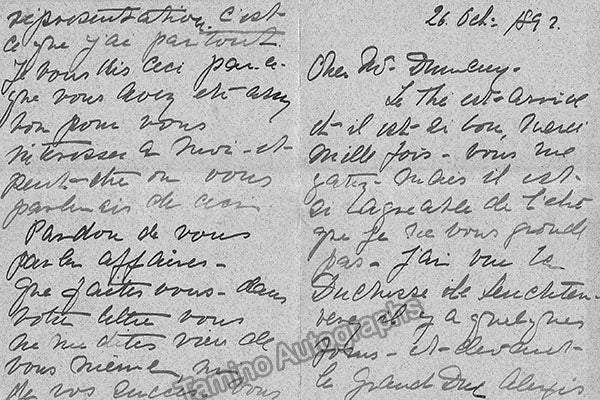 26 Oct. 1892.
Cher Mr.
Le thé est arrivé
et il est si bon, merci
mille fois - vous me
gatez - mais il est
si agréable de l'être
que je ne vous gronde
pas - J'ai vu la
Duchesse de Leuchten-
berg il y a quelques
jours - et devant
le grand Duc Alexis
représentation. C'est
ce que j'ai partout.
Je vous dis ceci parce-
que vous avez été assez
bon pour vous
intéresser à moi - et
peut-être on vous
de ceci
Pardon de vous
parler affaires -
que faites vous - dans
votre lettre vous
ne me dites rien de
vous même, ni
de vos succès. Vous
Tamino Autographs